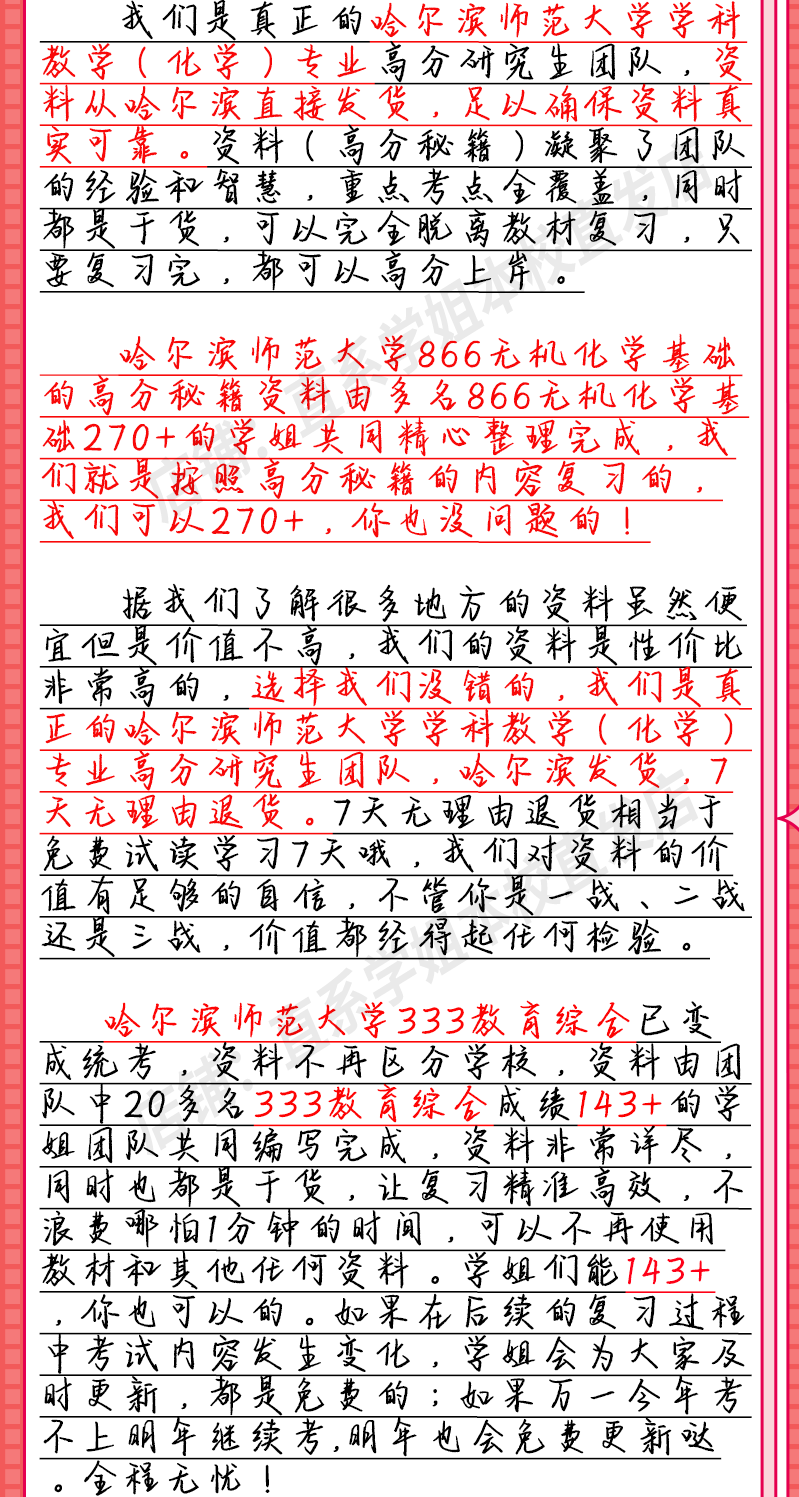 我们是真正的哈尔滨师范大学学科
教学（化学）专业高分研究生团队，资
料从哈尔滨直接发货，足以确保资料真
实可靠。资料（高分秘籍）凝聚了团队
的经验和智慧，重点考点全覆盖，同时
都是干货，可以完全脱离教材复习，只
要复习完，都可以高分上岸。
哈尔滨师范大学866无机化学基础
的高分秘籍资料由多名866无机化学基
础270+的学姐共同精心整理完成，我
们就是按照高分秘籍的内容复习的，
我们可以270+，你也没问题的！
据我们了解很多地方的资料虽然便
宜但是价值不高，我们的资料是性价比
非常高的，选择我们没错的，我们是真
正的哈尔滨师范大学学科教学（化学）
专业高分研究生团队，哈尔滨发货，7
天无理由退货。7天无理由退货相当于
免费试读学习7天哦，我们对资料的价
值有足够的自信，不管你是一战、二战
还是三战，价值都经得起任何检验。
哈尔滨师范大学333教育综合已变
成统考，资料不再区分学校，资料由团
队中20多名333教育综合成绩143+的学
姐团队共同编写完成，资料非常详尽，
同时也都是干货，让复习精准高效，不
浪费哪怕1分钟的时间，可以不再使用
教材和其他任何资料。学姐们能143+
，你也可以的。如果在后续的复习过程
中考试内容发生变化，学姐会为大家及
时更新，都是免费的；如果万一今年考
不上明年继续考,明年也会免费更新哒
。全程无忧！
店铺：直系学姐本校直发店
店铺：直系学姐本校直发店